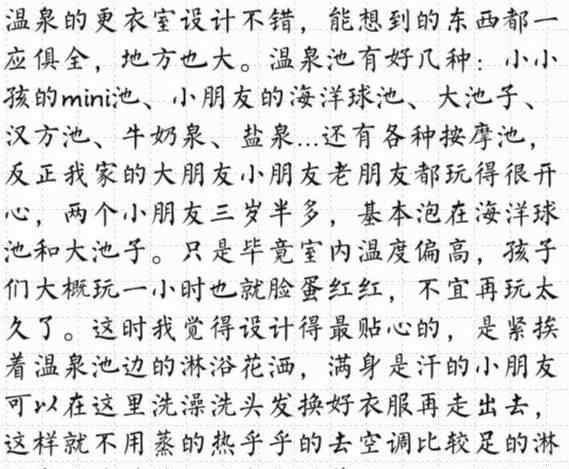 温泉的更衣室设计不错，能想到的东西都一
应俱全，地方也大。温泉池有好几种：小小
孩的mini池、小朋友的海洋球池、大池子、
汉方池、牛奶泉、盐泉...还有各种按摩池，
反正我家的大朋友小朋友老朋友都玩得很开
心，两个小朋友三岁半多，基本泡在海洋球
池和大池子。只是毕竟室内温度偏高，孩子
们大概玩一小时也就脸蛋红红，不宜再玩太
久了。这时我觉得设计得最贴心的，是紧挨
着温泉池边的淋浴花洒，满身是汗的小朋友
可以在这里洗澡洗头发换好衣服再走出去，
这样就不用蒸的热乎乎的去空调比较足的淋